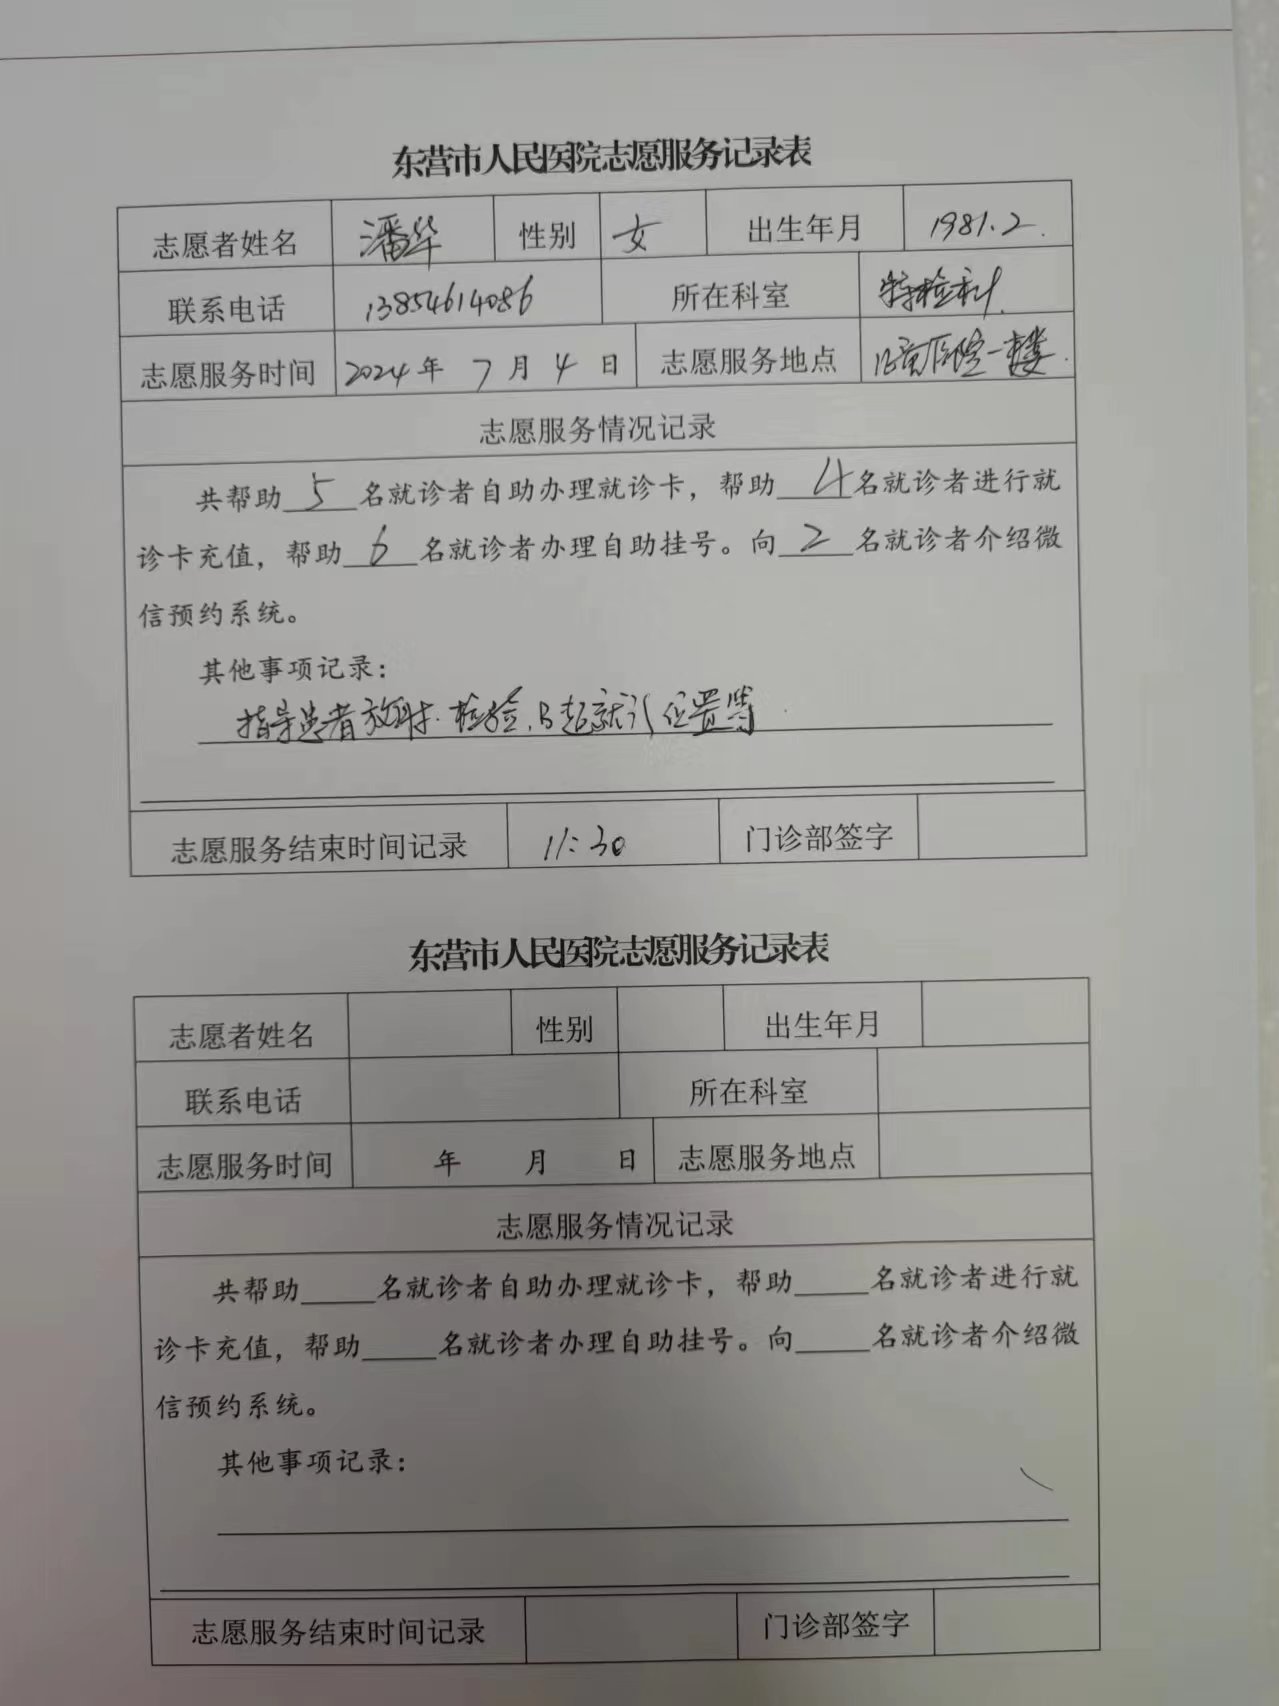 东营市人民医院志愿服务记录表
志愿者姓名 潘华 性别 女 出生年月 1981.2.
联系电话 13854614086 所在科室 特检科.
志愿服务时间 2024年 7月 4日 志愿服务地点 儿童医院一楼.
志愿服务情况记录
共帮助 5 名就诊者自助办理就诊卡，帮助 4 名就诊者进行就
诊卡充值，帮助 6 名就诊者办理自助挂号。向 2 名就诊者介绍微
信预约系统。
其他事项记录：
指导患者放射.检验.B超就诊位置等
志愿服务结束时间记录 11:30 门诊部签字
东营市人民医院志愿服务记录表
志愿者姓名 性别 出生年月
联系电话 所在科室
志愿服务时间 年 月 日 志愿服务地点
志愿服务情况记录
共帮助_____名就诊者自助办理就诊卡，帮助_____名就诊者进行就
诊卡充值，帮助_____名就诊者办理自助挂号。向_____名就诊者介绍微
信预约系统。
其他事项记录：
志愿服务结束时间记录 门诊部签字